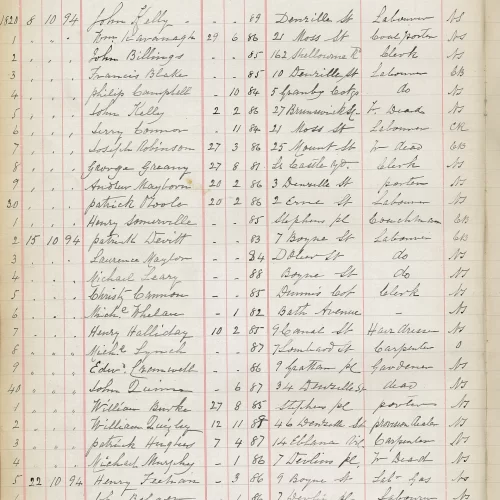 1820 8 10 94 John Kelly - - 89 Denzille St Labourer NS
1 " " " Tom Kavanagh 29 6 86 21 Moss St Coalporter NS
2 " " " John Billings - - 85 162 Shelbourne Rd Clerk NS
3 " " " Francis Blake - - 85 10 Denzille St Labourer CB
4 " " " Philip Campbell - 10 84 5 Granby Cotgs do NS
5 " " " John Kelly 2 2 86 27 Brunswick St F. Dead NS
6 " " " Terry Connor - 11 84 21 Moss St Labourer
7 " " " Joseph Robinson 27 3 86 25 Mount St F dead CB
8 " " " George Greany 27 8 81 Castle Clerk NS
9 " " " Andrew 20 2 86 3 Denzille St porter NS
30 " " " Patrick Toole 20 2 86 2 Erne St Labourer NS
1 " " " Henry Somerville - - 85 Stephens pl Coachman CB
2 15 10 94 Patrick Devitt - - 83 7 Boyne St Labourer CB
3 " " " Laurence Naylor - - 84 St do NS
4 " " " Michael Leary - - 88 Boyne St do NS
5 " " " Christy Cannon - - 85 Cot Clerk NS
6 " " " Michl Whelan - 1 82 Bath Avenue - NS
7 " " " Henry Halliday 10 2 85 9 Canal St NS
8 " " " Michl Lynch - - 87 7 Lombard St Carpenter
9 " " " Edwd Cromwell - - 87 9 Grattan pl Gardener NS
40 " " " John Quinn - 6 87 34 Denzille St dead NS
1 " " " William Burke 27 8 85 Stephs pl porter NS
2 " " " William Quigley 12 11 88 46 Denzille St provision dealer NS
3 " " " Patrick Hughes 7 4 87 14 Eblana Carpenter NS
4 " " " Michael Murphy - 1 86 7 Devlins pl F Dead NS
5 22 10 94 Henry Feehan - 3 86 9 Boyne St Labr Gas NS
1 86 7 Devlin pl Labourer NS